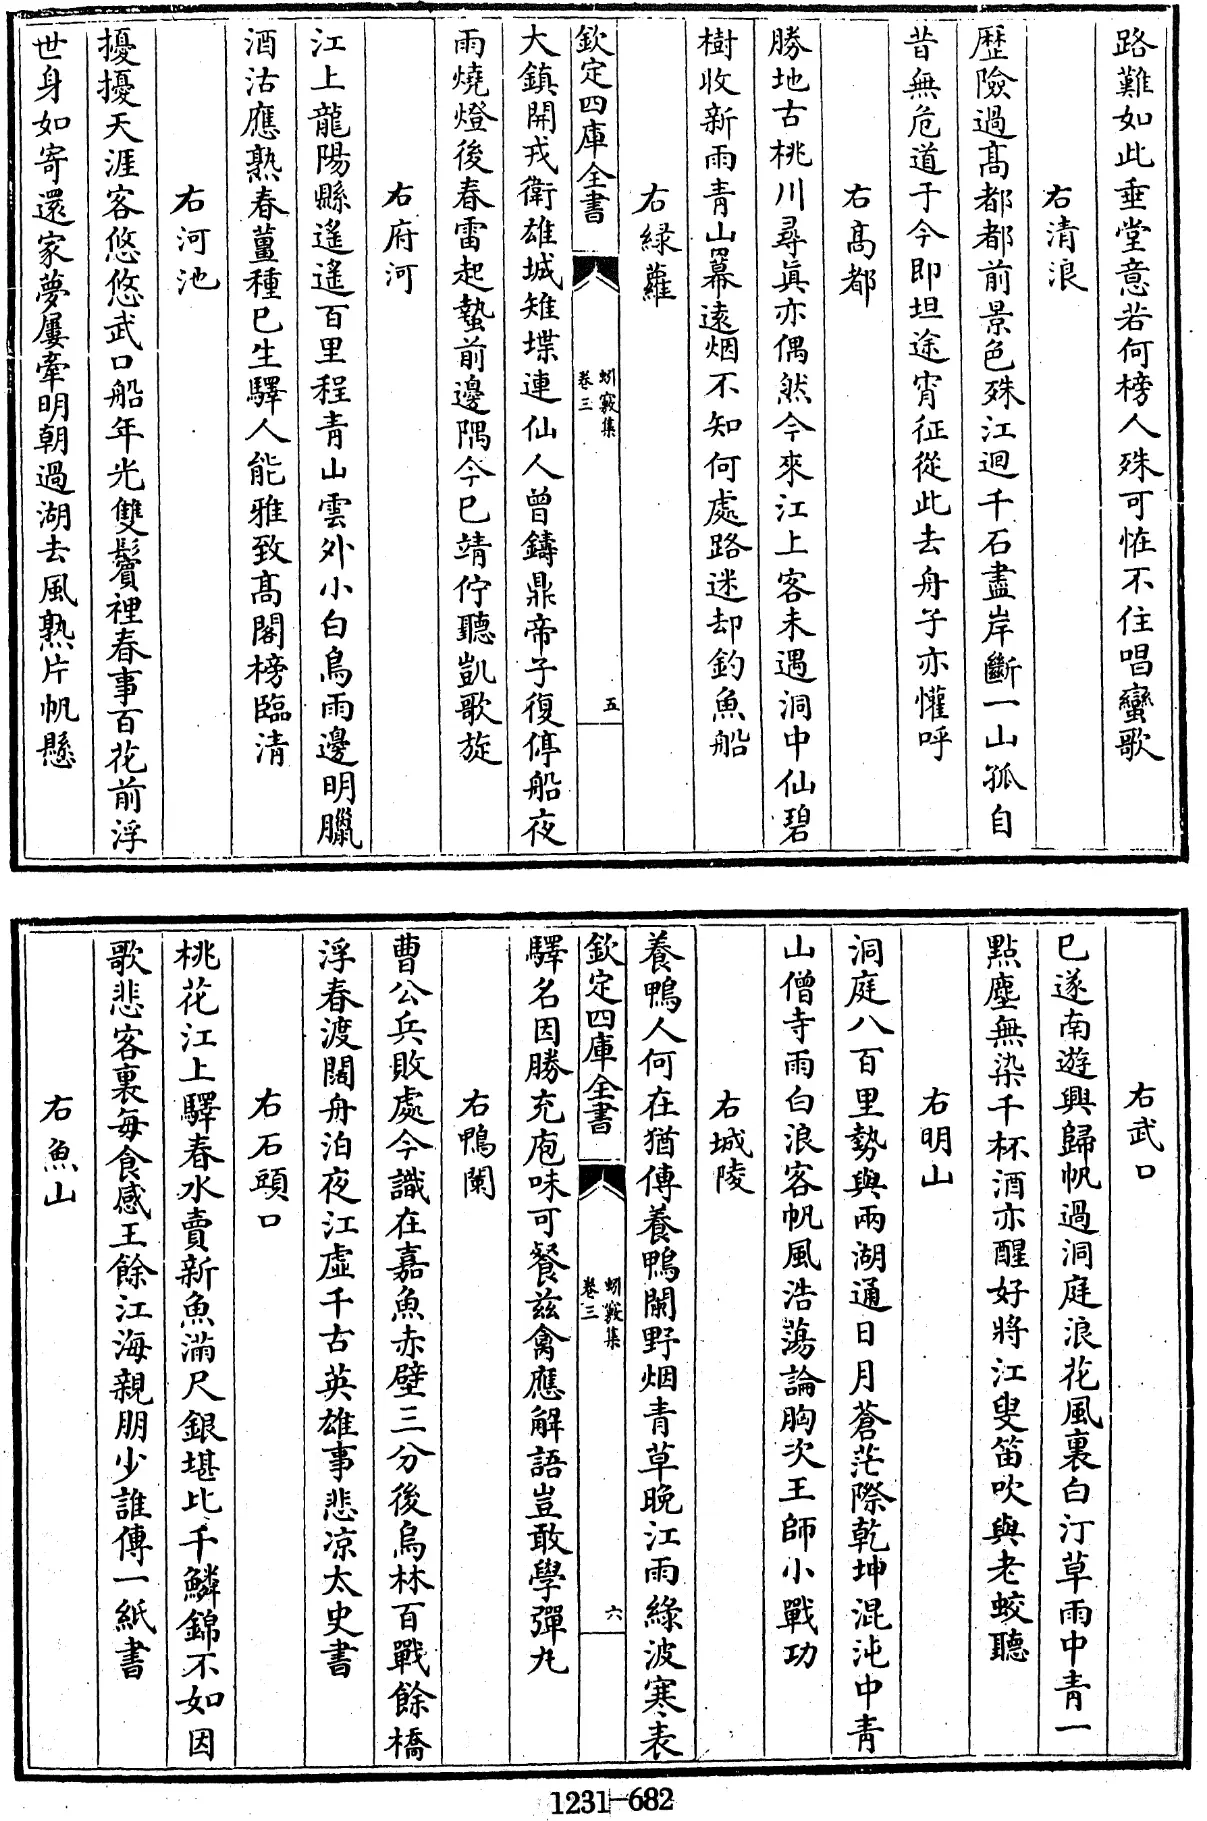 路難如此垂堂意若何榜人殊可恠不住唱蠻歌
右清浪
歴險過髙都都前景色殊江迴千石盡岸斷一山孤自
昔無危道于今即坦途宵征從此去舟子亦懽呼
右髙都
勝地古桃川尋真亦偶然今來江上客未遇洞中仙碧
樹收新雨青山冪遠烟不知何處路迷却釣魚船
右緑蘿
欽定四庫全書
蚓竅集
卷三
五
大鎮開戎衛雄城雉堞連仙人曾鑄鼎帝子復停船夜
雨燒燈後春雷起蟄前邊隅今已靖佇聽凱歌旋
右府河
江上龍陽縣遙遙百里程青山雲外小白鳥雨邊明臘
酒沽應熟春薑種已生驛人能雅致髙閣榜臨清
右河池
擾擾天涯客悠悠武口船年光雙鬢裡春事百花前浮
世身如寄還家夢屢牽明朝過湖去風熟片帆懸
右武口
已遂南遊興歸帆過洞庭浪花風裏白汀草雨中青一
點塵無染千杯酒亦醒好將江叟笛吹與老蛟聽
右明山
洞庭八百里勢與兩湖通日月蒼茫際乾坤混沌中青
山僧寺雨白浪客帆風浩蕩論胸次王師小戰功
右城陵
養鴨人何在猶傳養鴨闌野烟青草晩江雨緑波寒表
欽定四庫全書
蚓竅集
卷三
六
驛名因勝充庖味可餐兹禽應解語豈敢學彈丸
右鴨闌
曹公兵敗處今識在嘉魚赤壁三分後烏林百戰餘橋
浮春渡闊舟泊夜江虛千古英雄事悲凉太史書
右石頭口
桃花江上驛春水賣新魚滿尺銀堪比千鱗錦不如因
歌悲客裏每食感王餘江海親朋少誰傳一紙書
右魚山
1231-682